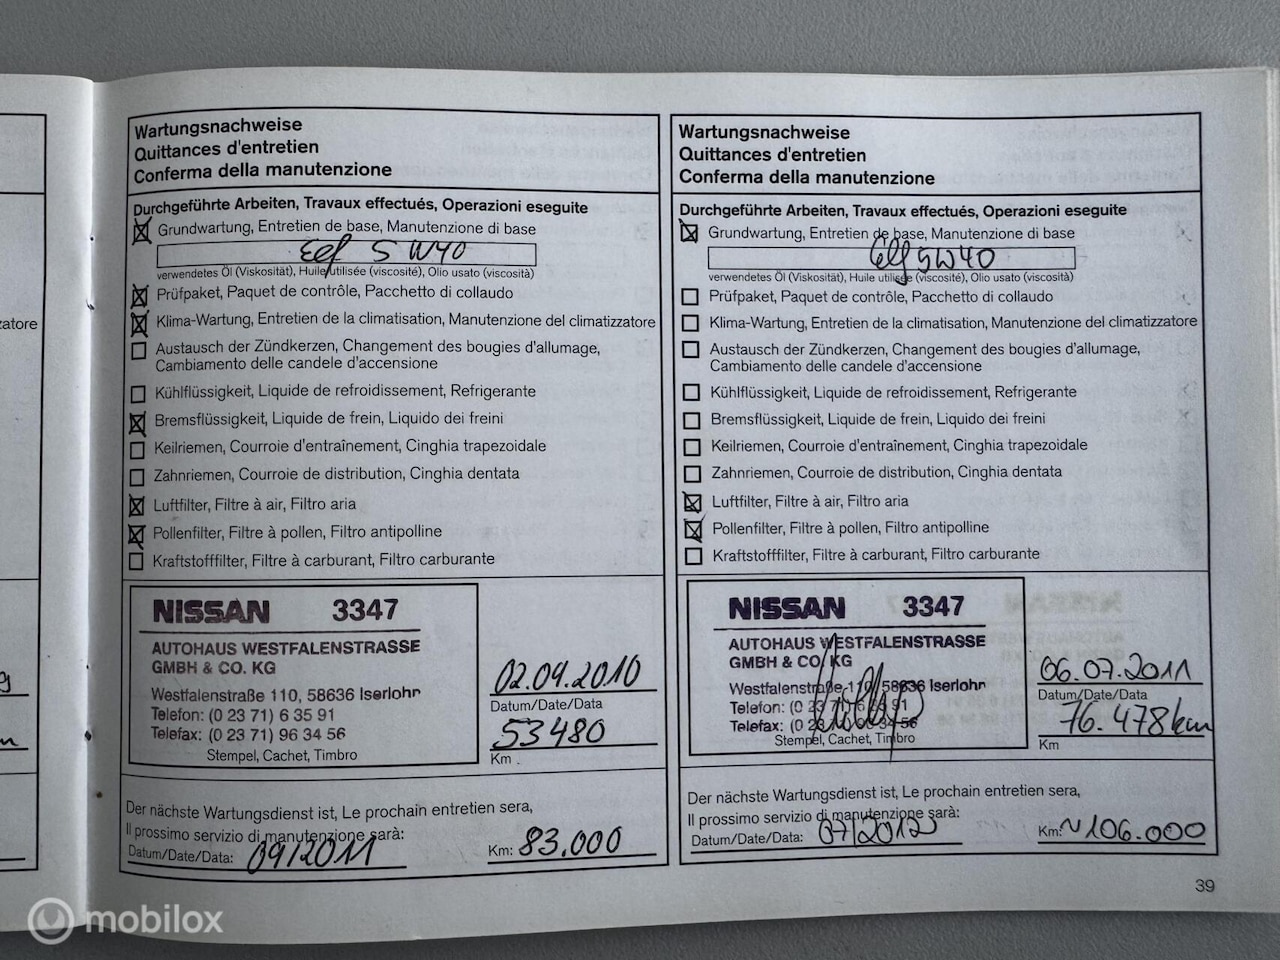 zatore
Wartungsnachweise
Quittances d'entretien
Conferma della manutenzione
Durchgeführte Arbeiten, Travaux effectués, Operazioni eseguite
Grundwartung, Entretien de base, Manutenzione di base
Elf 5W40
verwendetes Öl (Viskosität), Huile utilisée (viscosité), Olio usato (viscosità)
Prüfpaket, Paquet de contrôle, Pacchetto di collaudo
Klima-Wartung, Entretien de la climatisation, Manutenzione del climatizzatore
Austausch der Zündkerzen, Changement des bougies d'allumage,
Cambiamento delle candele d'accensione
Kühlflüssigkeit, Liquide de refroidissement, Refrigerante
Bremsflüssigkeit, Liquide de frein, Liquido dei freini
Keilriemen, Courroie d'entraînement, Cinghia trapezoidale
Zahnriemen, Courroie de distribution, Cinghia dentata
Luftfilter, Filtre à air, Filtro aria
Pollenfilter, Filtre à pollen, Filtro antipolline
Kraftstofffilter, Filtre à carburant, Filtro carburante
NISSAN 3347
AUTOHAUS WESTFALENSTRASSE
GMBH & CO. KG
Westfalenstraße 110, 58636 Iserlohn
Telefon: (0 23 71) 6 35 91
Telefax: (0 23 71) 96 34 56
Stempel, Cachet, Timbro
02.09.2010
Datum/Date/Data
53480
Km .
Der nächste Wartungsdienst ist, Le prochain entretien sera,
Il prossimo servizio di manutenzione sarà:
Datum/Date/Data: 09/2011 Km: 83.000
Wartungsnachweise
Quittances d'entretien
Conferma della manutenzione
Durchgeführte Arbeiten, Travaux effectués, Operazioni eseguite
Grundwartung, Entretien de base, Manutenzione di base
Elf 5W40
verwendetes Öl (Viskosität), Huile utilisée (viscosité), Olio usato (viscosità)
Prüfpaket, Paquet de contrôle, Pacchetto di collaudo
Klima-Wartung, Entretien de la climatisation, Manutenzione del climatizzatore
Austausch der Zündkerzen, Changement des bougies d'allumage,
Cambiamento delle candele d'accensione
Kühlflüssigkeit, Liquide de refroidissement, Refrigerante
Bremsflüssigkeit, Liquide de frein, Liquido dei freini
Keilriemen, Courroie d'entraînement, Cinghia trapezoidale
Zahnriemen, Courroie de distribution, Cinghia dentata
Luftfilter, Filtre à air, Filtro aria
Pollenfilter, Filtre à pollen, Filtro antipolline
Kraftstofffilter, Filtre à carburant, Filtro carburante
NISSAN 3347
AUTOHAUS WESTFALENSTRASSE
GMBH & CO. KG
Westfalenstraße 110, 58636 Iserlohn
Telefon: (0 23 71) 6 35 91
Telefax: (0 23 71) 96 34 56
Stempel, Cachet, Timbro
06.07.2011
Datum/Date/Data
76.478km
Km
Der nächste Wartungsdienst ist, Le prochain entretien sera,
Il prossimo servizio di manutenzione sarà:
Datum/Date/Data: 07/2012 Km: ~106.000
39
mobilox